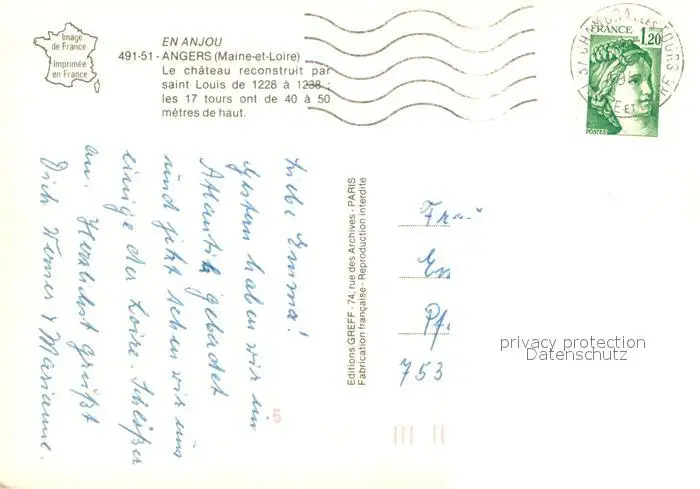 Image
de France
Imprimée
en France
EN ANJOU
491-51 - ANGERS (Maine-et-Loire)
Le château reconstruit par
saint Louis de 1228 à 1238 ;
les 17 tours ont de 40 à 50
mètres de haut.
FRANCE 1,20
POSTES
Liebe Emma!
Gestern haben wir im
Atlantik gebadet
und jetzt sehen wir uns
einige der Loire-Schlößer
an. Herzlichst grüßt
Dich Werner & Marianne.
5
Editions GREFF - 74, rue des Archives - PARIS
Fabrication française - Reproduction interdite
Frau
Em
Pf
753
privacy protection
Datenschutz